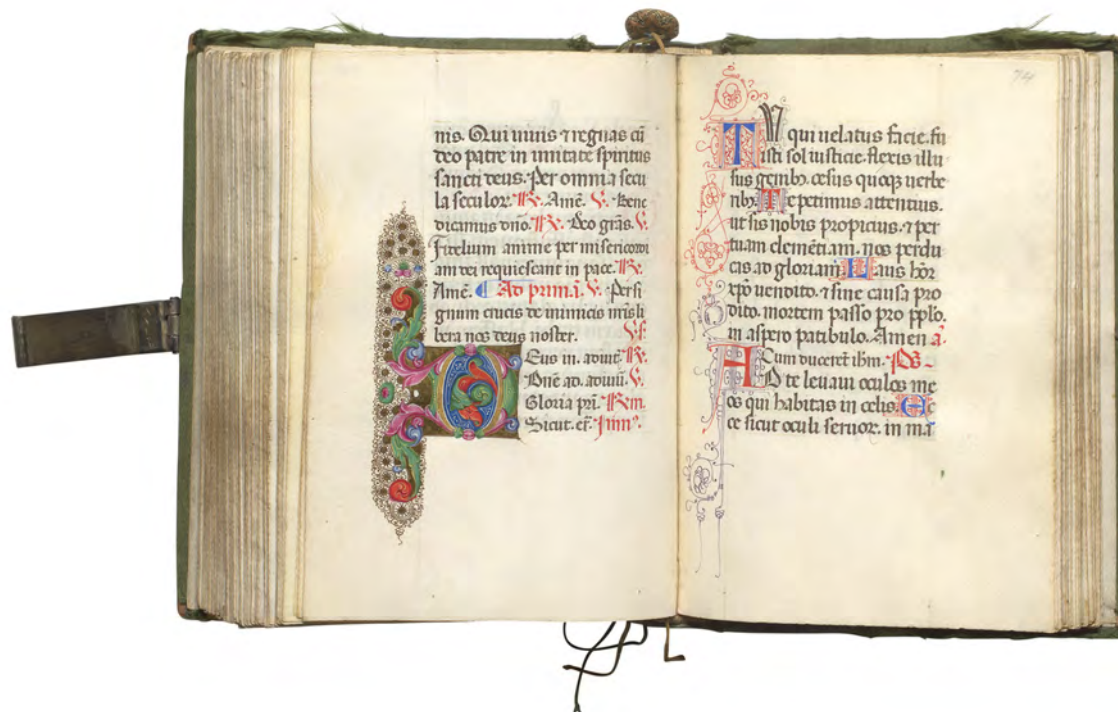 nis. Qui uiuis ⁊ regnas cū
deo patre in unitate spiritus
sancti deus. Per omnia secu
la seculor. ℟. Amē. ℣. Bene
dicamus dn̄o. ℟. Deo grās. ℣.
Fidelium anime per misericordi
am dei requiescant in pace. ℟.
Amē. Ad primā. ℣. Per si
gnum crucis de inimicis nr̄is li
bera nos deus noster. ℣.
Deus in. adiut. ℟.
Dn̄e ad. adiuū. ℣.
Gloria pri. ℟.
Sicut. er̄.
74
Tu qui uelatus facie. fu
isti sol iusticie. flexis illu
sus genibȝ. cesus quoqȝ uerbe
ribȝ. Te petimus attentius.
ut sis nobis propicius. ⁊ per
tuam clemētiam. nos perdu
cas ad gloriam. Laus hōr
xp̄o uendito. ⁊ sine causa pro
dito. mortem passo pro pplo.
in aspero patibulo. Amen a.
Cum ducerēt ihm. Ps.
AD te leuaui oculos me
os qui habitas in celis. Ec
ce sicut oculi seruor. in mā